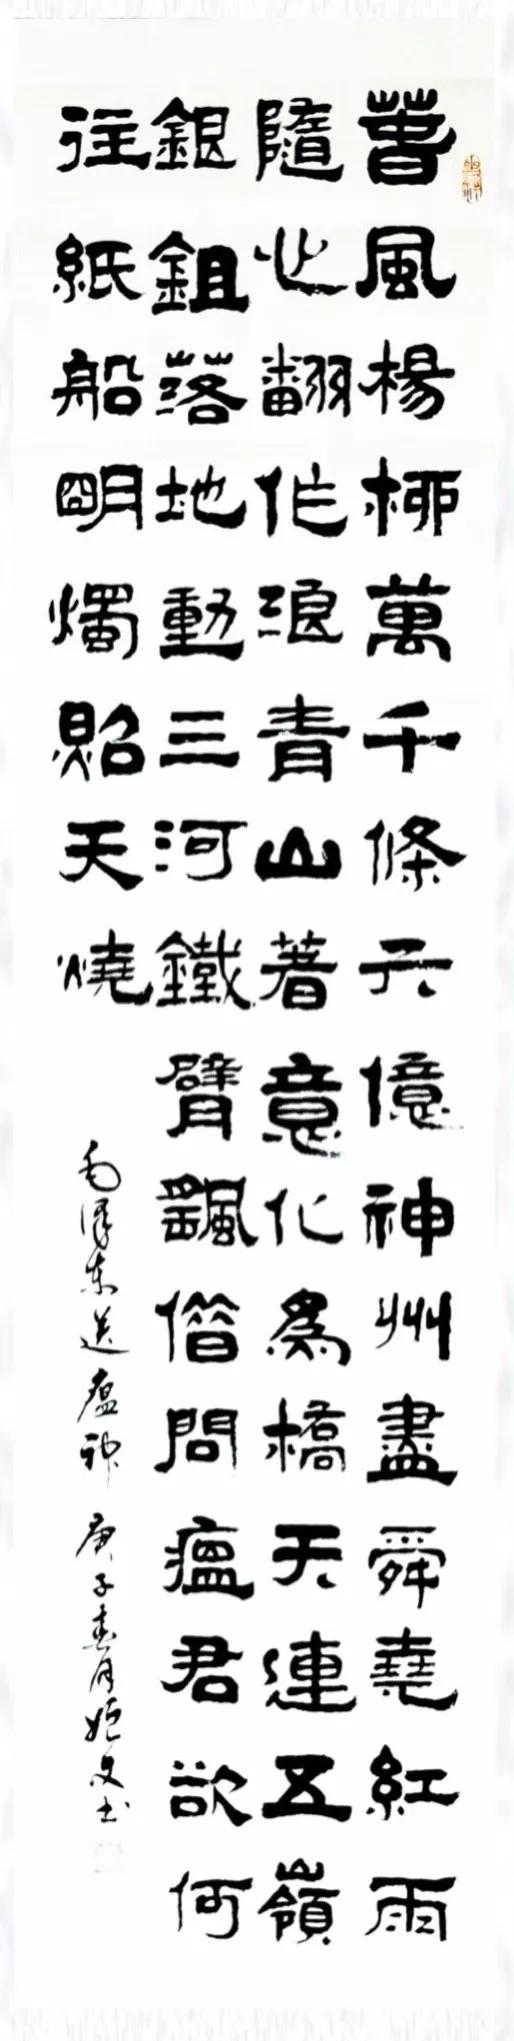 春風楊柳萬千條六億神州盡舜堯紅雨
隨心翻作浪青山著意化為橋天連五嶺
銀鉏落地動三河鐵臂颻借問瘟君欲何
往紙船朙燭照天燒
毛澤東送瘟神 庚子春月姬文书